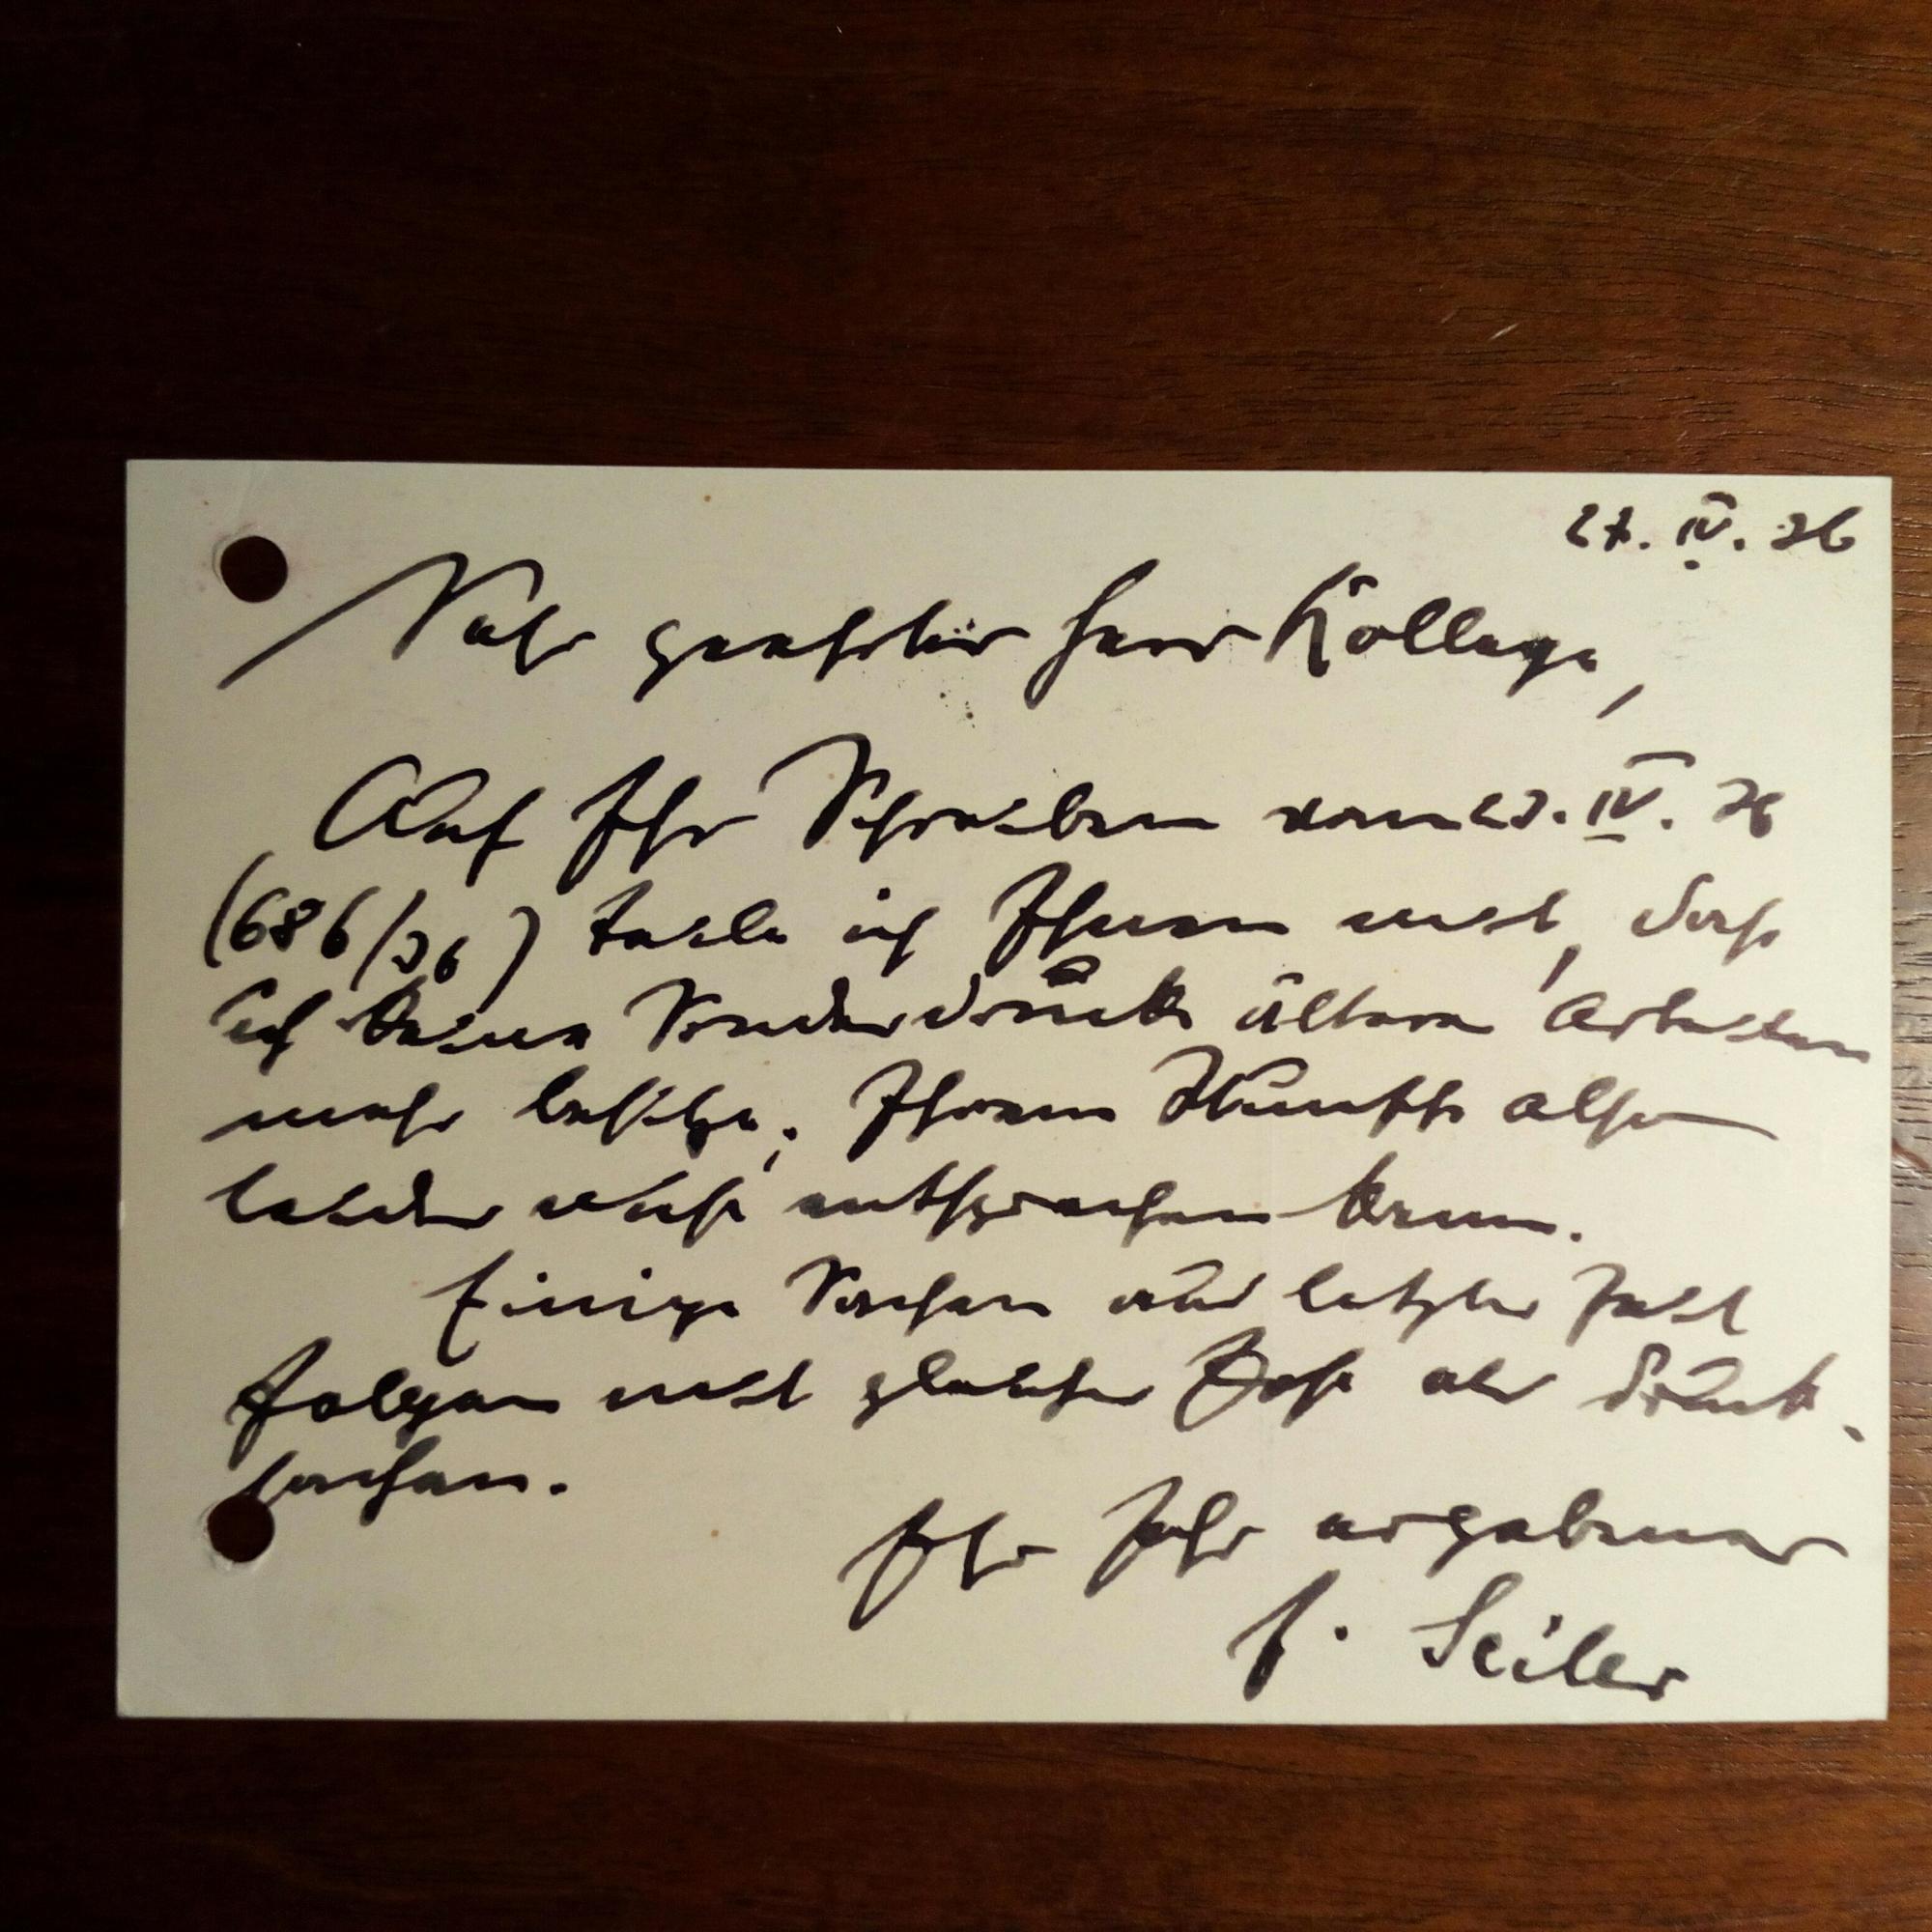 27. IV. 36
Sehr geehrter Herr Kollege,
Auf Ihr Schreiben vom 23. IV. 36
(686/36) teile ich Ihnen mit, dass
ich keine Sonderdrucke älterer Arbeiten
mehr besitze; Ihrem Wunsche also
leider nicht entsprechen kann.
Einige Sachen aus letzter Zeit
folgen mit gleicher Post als Druck-
sachen.
Ihr sehr ergebener
F. Seiler